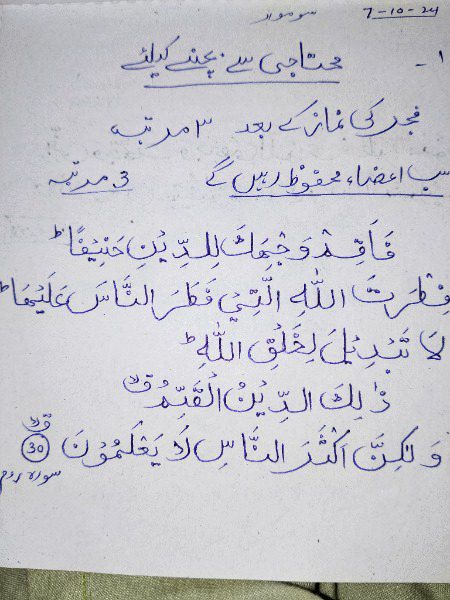 7-10-24
سوموار
۱- محتاجی سے بچنے کیلئے
فجر کی نماز کے بعد ۳ مرتبہ
سب اعضاء محفوظ رہیں گے 3 مرتبہ
فَاَقِمْ وَجْهَكَ لِلدِّيْنِ حَنِيْفًا ؕ
فِطْرَتَ اللّٰهِ الَّتِىْ فَطَرَ النَّاسَ عَلَيْهَا ؕ
لَا تَبْدِيْلَ لِخَلْقِ اللّٰهِ ؕ
ذٰلِكَ الدِّيْنُ الْقَيِّمُ ۙق
وَلٰكِنَّ اَكْثَرَ النَّاسِ لَا يَعْلَمُوْنَ 30 ۙق
سورہ روم